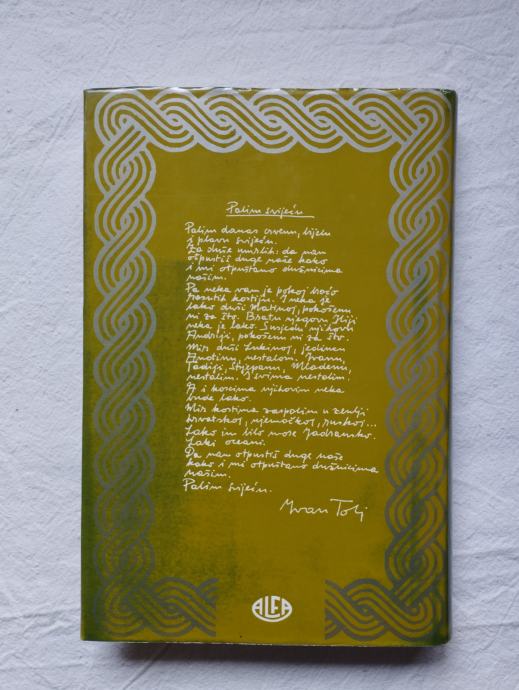 Palim svijeću
Palim danas crvenu, bijelu
i plavu svijeću.
Za duše umrlih: da nam
otpustiš duge naše kako
i mi otpuštamo dužnicima
našim.
Pa neka vam je pokoj
kostiju. I neka je
lako duši Matinoj, pokošenu
ni za što. Bratu njegovu Iliji
neka je lako. Susjedu njihovu
Andriji, pokošenu ni za što.
Mir duši Lukinoj, jedinom
nestalom. Ivanu,
Tadiji, Stjepanu, Mladenu,
nestalim. I svima nestalim.
A i kostima njihovim neka
bude lako.
Mir kostima zaspalim u zemlji
hrvatskoj, njemačkoj, ruskoj...
Lako im bilo more Jadransko.
Laki oceani.
Da nam otpustiš duge naše
kako i mi otpuštamo dužnicima
našim.
Palim svijeću.
Ivan Tolj
ALFA